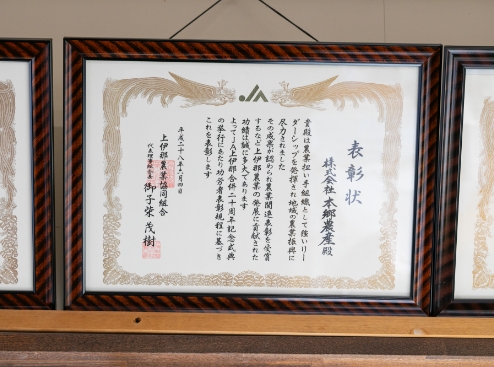 JA
表彰状
株式会社 本郷農産 殿
貴殿は農業担い手組織として強いリー
ダーシップを発揮され地域の農業振興に
尽力されました
その成果が認められ農業関連表彰を受賞
するなど上伊那農業の発展に貢献された
功績は誠に多大であります
よってJA上伊那合併二十周年記念式典
の挙行にあたり功労者表彰規程に基づき
これを表彰します
平成二十八年六月四日
上伊那農業協同組合
代表理事組合長 御子柴 茂樹